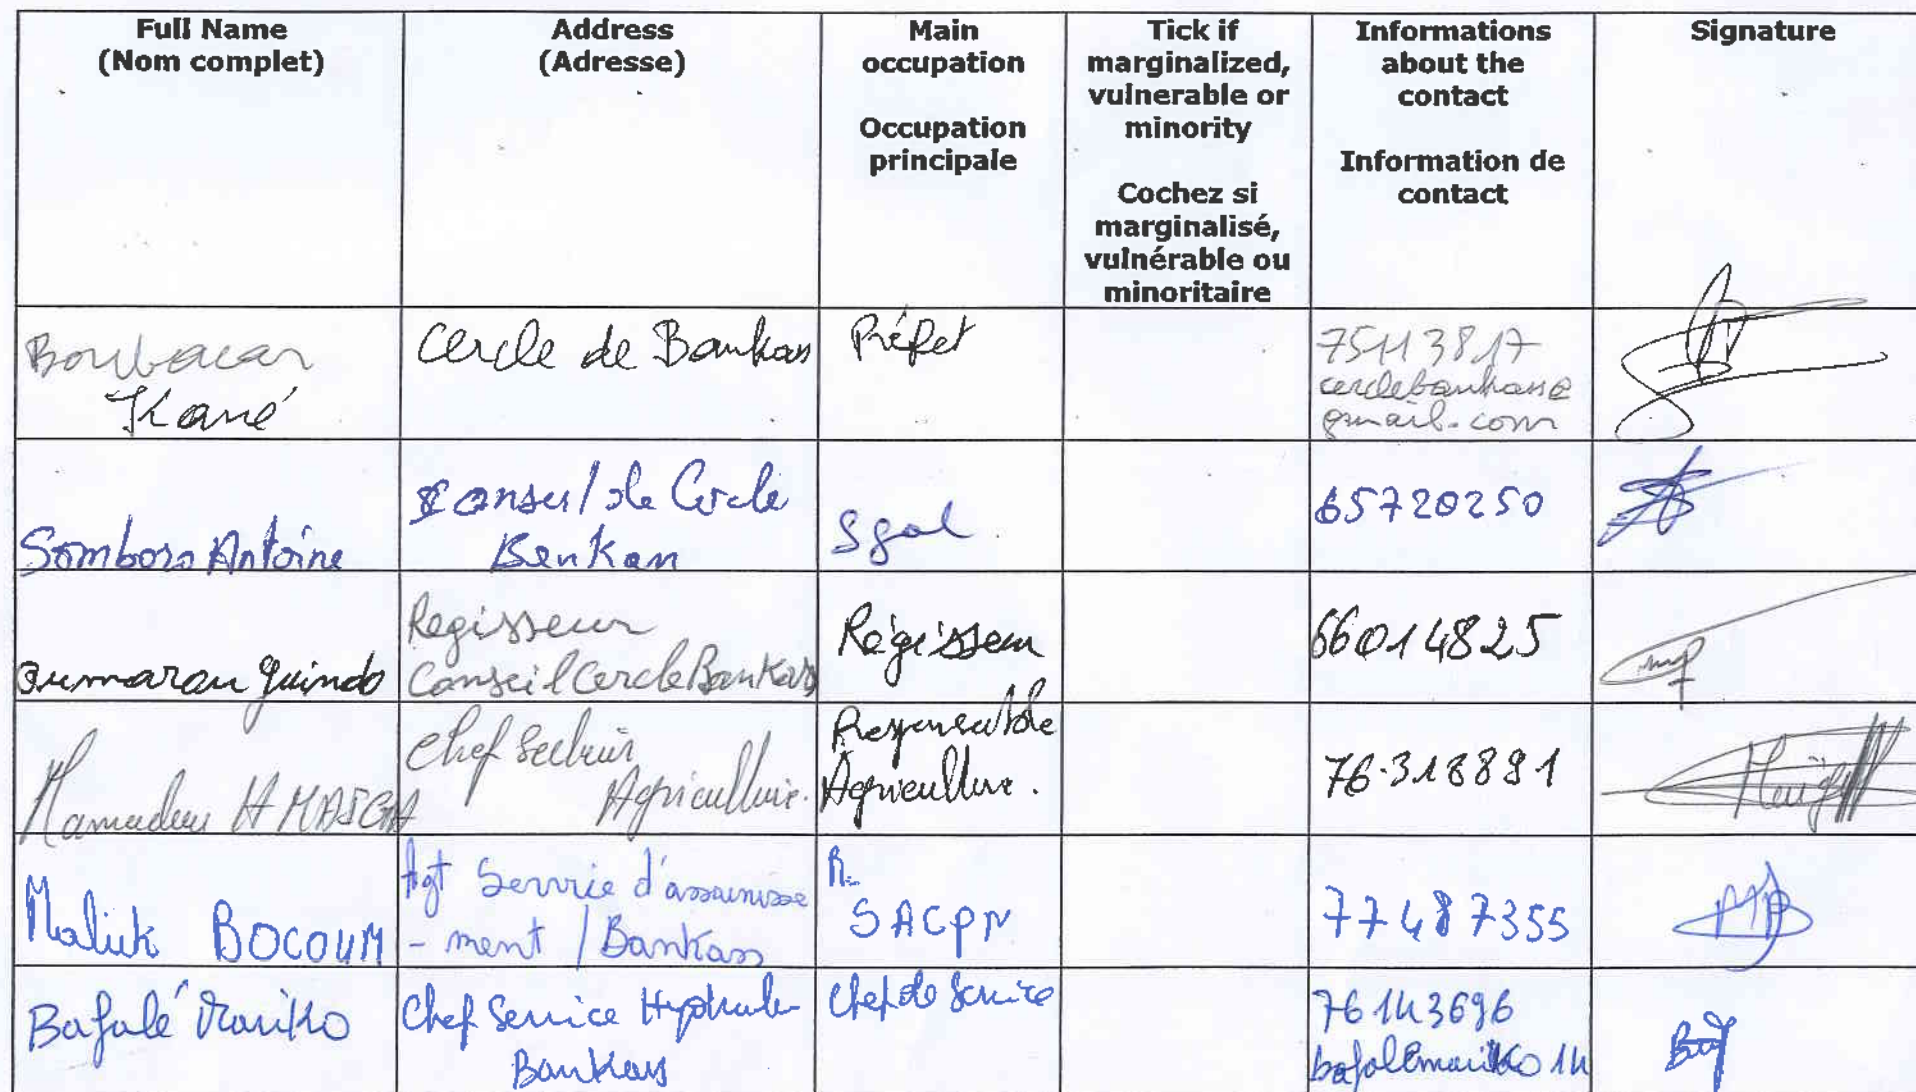 Full Name
(Nom complet)
Address
(Adresse)
Main
occupation
Occupation
principale
Tick if
marginalized,
vulnerable or
minority
Cochez si
marginalisé,
vulnérable ou
minoritaire
Informations
about the
contact
Information de
contact
Signature
Boubacar
Kané
Cercle de Bankass
Préfet
cerclebankass@
gmail.com
Somboro Antoine
Conseil de Cercle
Bankass
Sgal
65720250
Oumarou Guindo
Regisseur
Conseil Cercle Bankass
Régisseur
66014825
Mamadou H MAIGA
Chef Secteur
Agriculture.
Responsable
Agriculture.
76.318891
Malick BOCOUM
Agt Service d'assainisse
- ment / Bankass
R.
SACPN
77487355
Bafalé Mariko
Chef Service Hydraulique
Bankass
Chef de Service